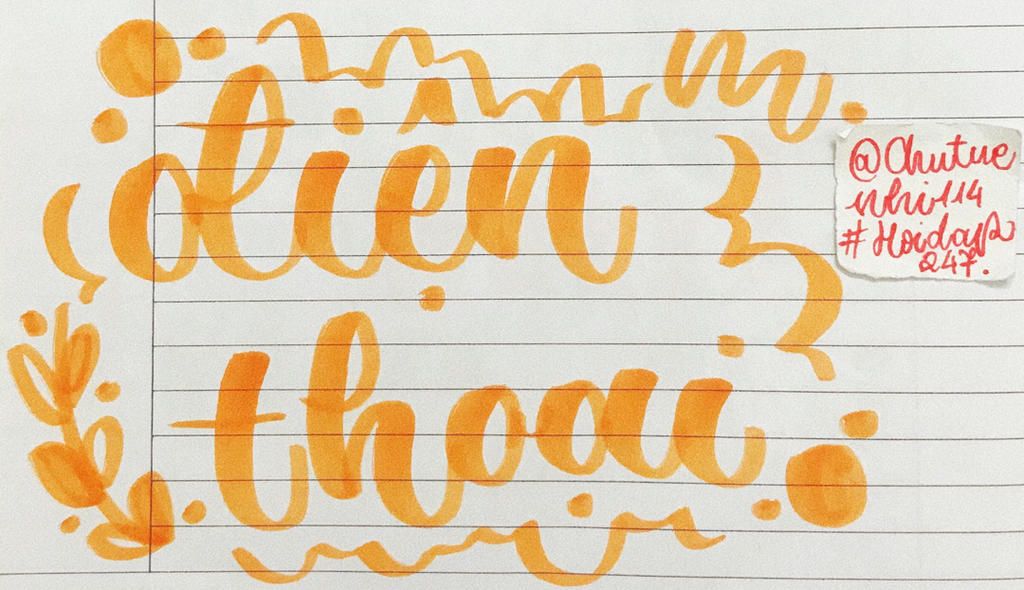 điện
thoại
@Chutue
nhi114
#Hoidap
247.